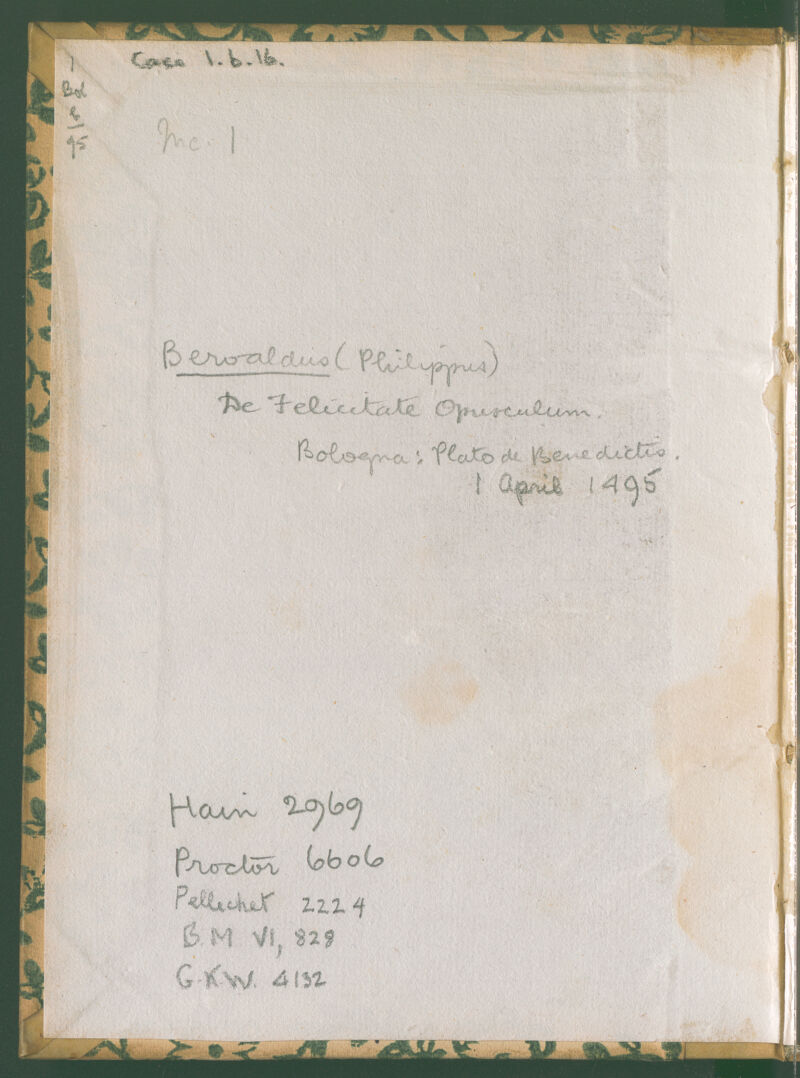 Case 1.b.16.
1
Bol
b/
95
Inc. 1
Beroaldus (Philippus)
De Felicitate Opusculum.
Bologna: Plato de Benedictis.
1 April 1495
Hain 2969
Proctor 6606
Pellechet 2224
B.M VI, 828
G.K.W. 4132